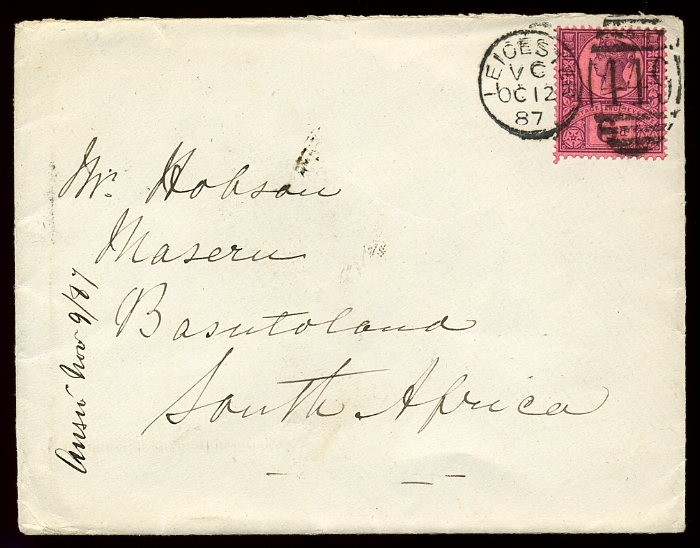 LEICES
VC
OC 12
87
449
Mr. Hobson
Maseru
Basutoland
South Africa
Answd Nov 9/87